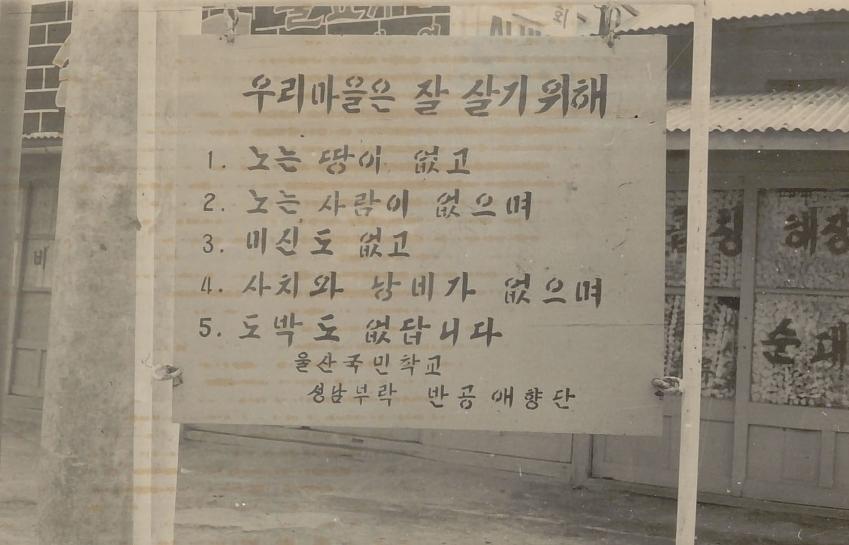 우리마을은 잘 살기 위해
1. 노는 땅이 없고
2. 노는 사람이 없으며
3. 미신도 없고
4. 사치와 낭비가 없으며
5. 도박도 없답니다
울산국민학교
성남부락 반공애향단
회
비
해장
순대